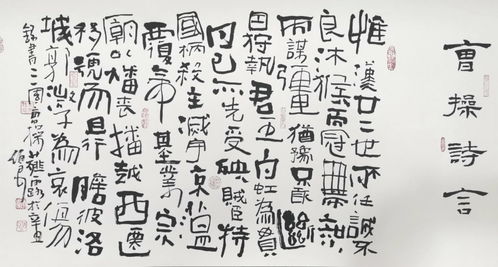 曹操詩言
惟漢廿二世所任誠不
良沐猴而冠帶知
而謀彊猶豫不敢斷
因狩執君王白虹為貫
日己亦先受殃賊臣持
國柄殺主滅宇京蕩
覆帝基業宗
廟以燔喪播越西遷
移號而且行瞻彼洛
城郭微子為哀傷
錄書三國曹操薤露於辛丑